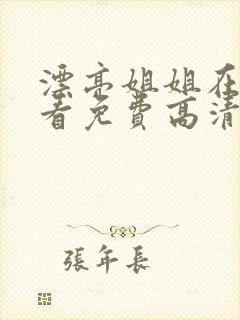 漂亮姐姐在
看免費高清
張年長